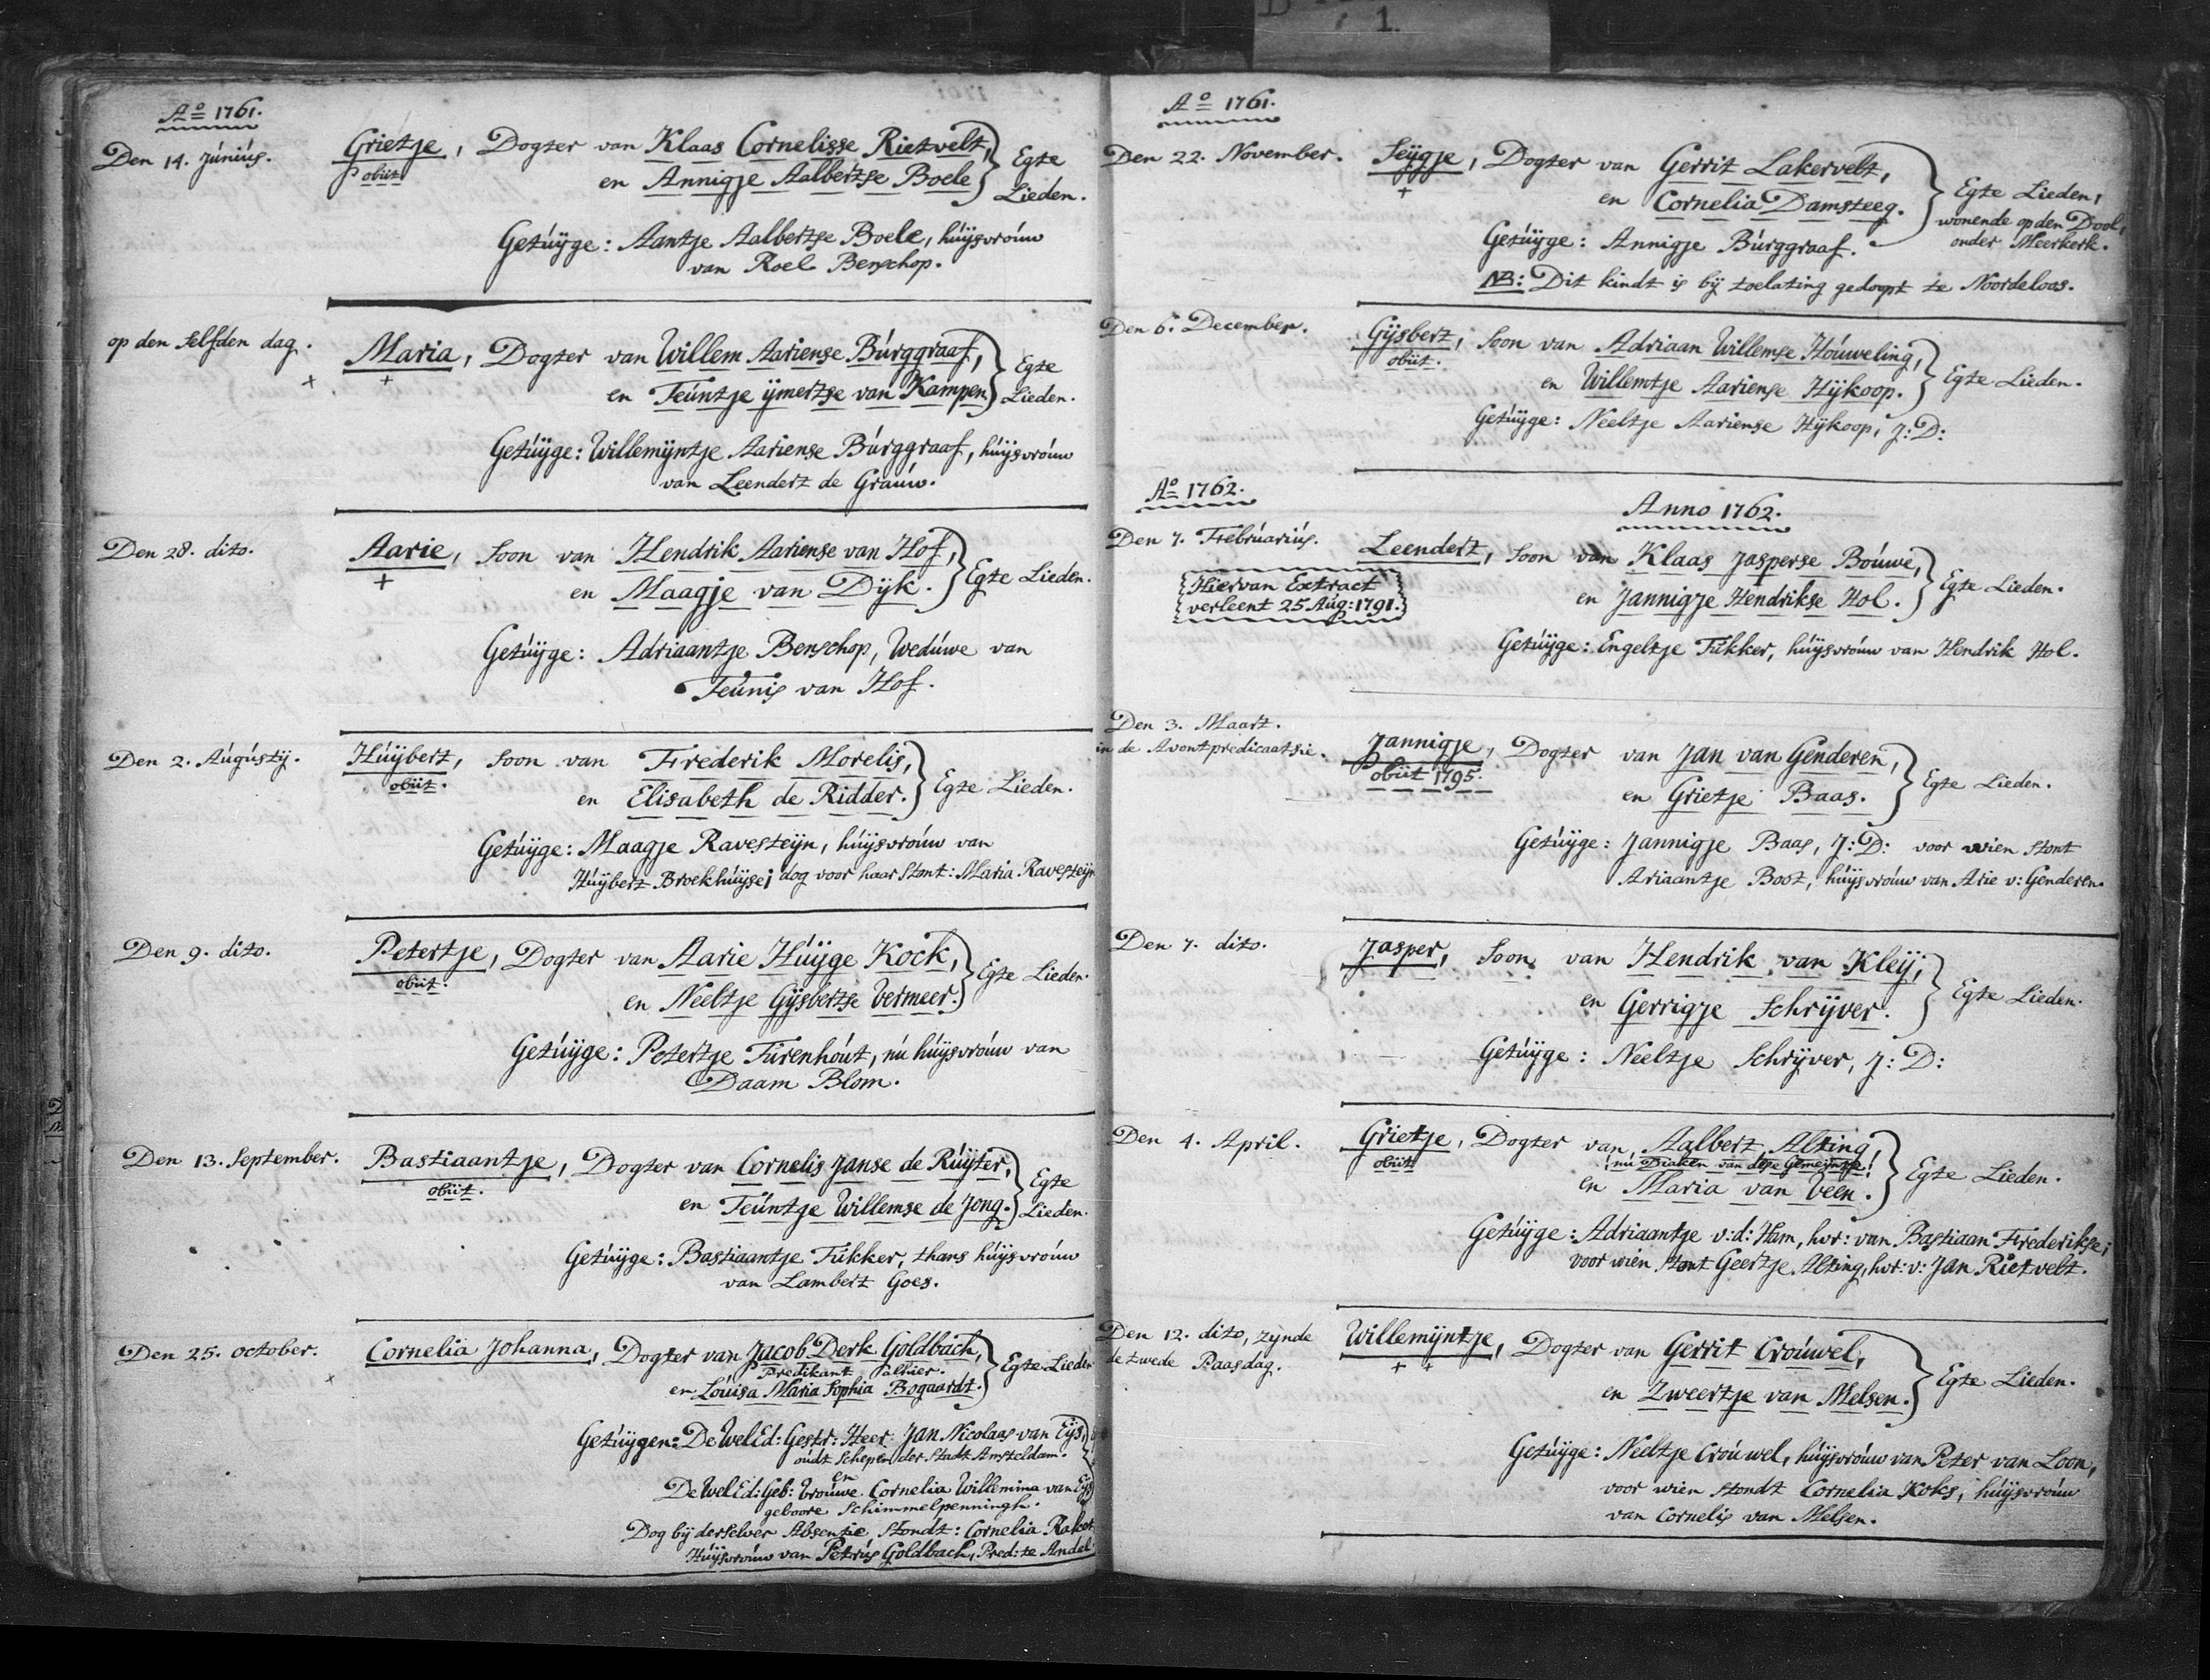 1.
Ao 1761.
Den 14. Júniús. Grietje, Dogter van Klaas Cornelisse Rietvelt,
obiit
en Annigje Aalbertse Boele } Egte Lieden.
Getúÿge: Aantje Aalbertse Boele, húÿsvroúw
van Roel Benschop.
op den selfden dag. Maria, Dogter van Willem Aariense Búrggraaf,
+ +
en Teúntje ÿmertse van Kampen } Egte Lieden.
Getúÿge: Willemÿntje Aariense Búrggraaf, húÿsvroúw
van Leendert de Graúw.
Den 28. dito. Aarie, Soon van Hendrik Aariense van Hof,
+
en Maagje van Dÿk. } Egte Lieden.
Getúÿge: Adriaantje Benschop, Wedúwe van
Teúnis van Hof.
Den 2. Aúgústÿ. Húÿbert, Soon van Frederik Morelis,
obiit.
en Elisabeth de Ridder. } Egte Lieden.
Getúÿge: Maagje Ravesteÿn, húÿsvroúw van
Húÿbert Broekhúÿse; dog voor haar Stont: Maria Ravesteÿn
Den 9. dito. Petertje, Dogter van Aarie Húÿge Kock,
obiit.
en Neeltje Gÿsbertse Vermeer. } Egte Lieden.
Getúÿge: Petertje Túrenhoút, nú húÿsvroúw van
Daam Blom.
Den 13. September. Bastiaantje, Dogter van Cornelis Janse de Rúÿter,
obiit.
en Teúntje Willemse de Jong. } Egte Lieden.
Getúÿge: Bastiaantje Fúkker, thans húÿsvroúw
van Lambert Goes.
Den 25. October. Cornelia Johanna, Dogter van Jacob Derk Goldbach,
+
Predikant alhier.
en Loúisa Maria Sophia Bogaardt. } Egte Lieden
Getúÿgen: De Wel Ed: Gestr: Heer Jan Nicolaas van Eÿs,
oúdt Schepen der Stadt Amsteldam.
en
De Wel Ed: Geb: Vroúwe Cornelia Willemina van Eÿs
geboore Schimmelpenningh.
Dog bÿ derselver Absentie Stondt: Cornelia
Húÿsvroúw van Petrús Goldbach, Pred: te Andel.
Ao 1761.
Den 22. November. Seÿgje, Dogter van Gerrit Lakervelt,
+
en Cornelia Damsteeg. } Egte Lieden,
wonende op den Dool,
onder Meerkerk.
Getúÿge: Annigje Búrggraaf.
NB: Dit kindt is bÿ toelating gedoopt te Noordeloos.
Den 6. December. Gÿsbert, Soon van Adriaan Willemse Hoúweling,
obiit.
en Willemtje Aariense Hÿkoop. } Egte Lieden.
Getúÿge: Neeltje Aariense Hÿkoop, J: D:
Ao 1762.
Anno 1762.
Den 7. Febrúariús. Leendert, Soon van Klaas Jasperse Boúwe,
Hiervan Extract
verleent 25 Aug: 1791.
en Jannigje Hendrikse Hol. } Egte Lieden.
Getúÿge: Engeltje Fúkker, húÿsvroúw van Hendrik Hol.
Den 3. Maart.
in de Avontpredicaatsie. Jannigje, Dogter van Jan van Genderen,
obiit 1795.
en Grietje Baas. } Egte Lieden.
Getúÿge: Jannigje Baas, J: D: voor wien Stont
Ariaantje Boot, húÿsvroúw van Arie v: Genderen.
Den 7. dito. Jasper, Soon van Hendrik van Kleÿ,
en Gerrigje Schrÿver. } Egte Lieden.
Getúÿge: Neeltje Schrÿver, J: D:
Den 4. April. Grietje, Dogter van Aalbert Alting,
obiit
nú Diaken van dese Gemeÿntse
en Maria van Veen. } Egte Lieden.
Getúÿge: Adriaantje v: d: Ham, hvr: van Bastiaan Frederikse;
voor wien Stont Geertje Alting, hvr: v: Jan Rietvelt.
Den 12. dito, zÿnde
de twede Paasdag. Willemÿntje, Dogter van Gerrit Croúwel,
+ +
en Zweertje van Melsen. } Egte Lieden.
Getúÿge: Neeltje Croúwel, húÿsvroúw van Peter van Loon,
voor wien Stondt Cornelia Koks, húÿsvroúw
van Cornelis van Melsen.